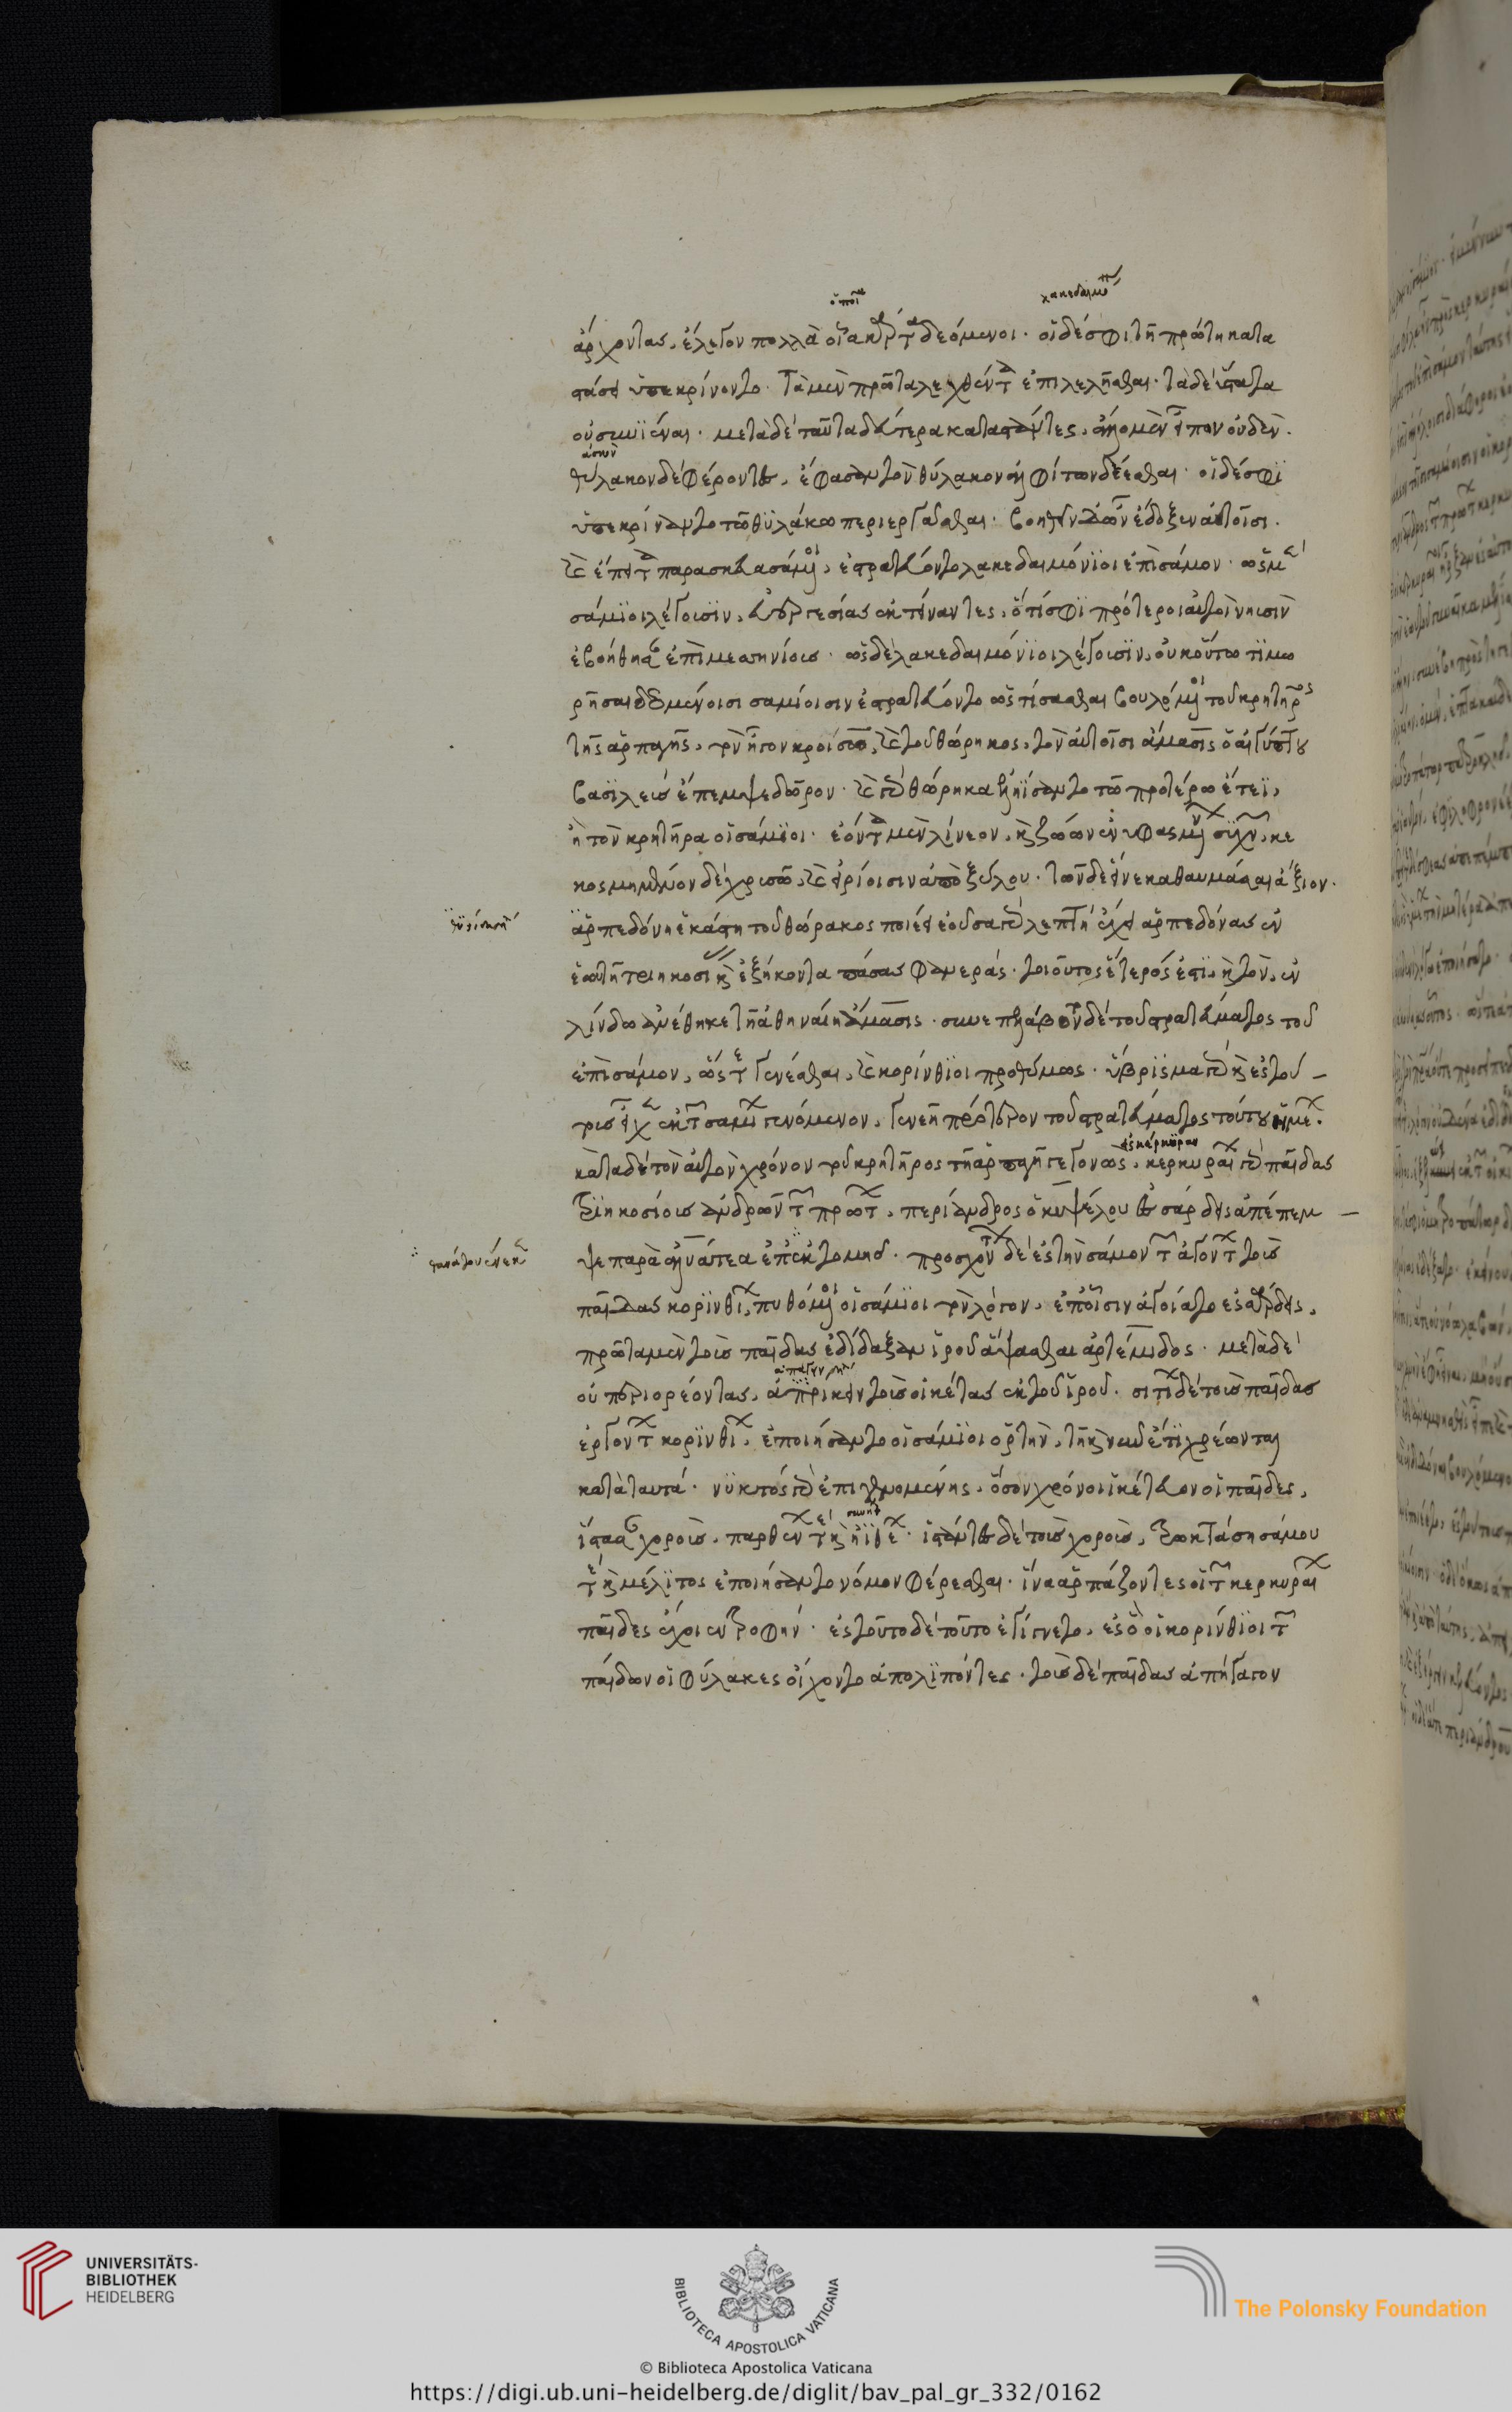 ἄρχοντας, ἔλεγον πολλὰ οἷα κάρτα δεόμενοι· οἱ δέ σφι τῇ πρώτῃ κατα
στάσει ὑπεκρίνοντο τὰ μὲν πρῶτα λεχθέντα ἐπιλελῆσθαι· τὰ δὲ ὕστατα
οὐ συνιέναι· μετὰ δὲ ταῦτα δεύτερα καταστάντες, ἄλλο μὲν εἶπον οὐδέν·
θύλακον δὲ φέροντες, ἔφασαν τὸν θύλακον ἀλφίτων δέεσθαι· οἱ δέ σφι
ὑπεκρίναντο τῷ θυλάκῳ περιεργάσασθαι· βοηθεῖν δ' ὦν ἔδοξεν αὐτοῖσι·
καὶ ἔπειτα παρασκευασάμενοι, ἐστρατεύοντο λακεδαιμόνιοι ἐπὶ σάμον· ὡς μὲν
σάμιοι λέγουσιν, εὐεργεσίας ἐκτίνοντες, ὅτι σφι πρότεροι αὐτοὶ νηυσὶν
ἐβοήθησαν ἐπὶ μεσηνίους· ὡς δὲ λακεδαιμόνιοι λέγουσιν, οὐκ οὕτω τιμω
ρῆσαι δεομένοισι σαμίοισιν ἐστρατεύοντο ὡς τίσασθαι βουλόμενοι τοῦ κρητῆρος
τῆς ἁρπαγῆς, τὸν ἦγον κροίσῳ, καὶ τοῦ θώρηκος, τὸν αὐτοῖσι ἄμασις ὁ αἰγύπτου
βασιλεὺς ἔπεμψε δῶρον· καὶ γὰρ θώρηκα ἐληίσαντο τῷ προτέρῳ ἔτεϊ,
ἢ τὸν κρητῆρα οἱ σάμιοι· ἐόντα μὲν λίνεον, καὶ ζώων ἐνυφασμένων συχνῶν, κε
κοσμημένον δὲ χρυσῷ, καὶ εἰρίοισιν ἀπὸ ξύλου· τῶν δὲ εἵνεκα θαυμάσαι ἄξιον·
ἁρπεδόνη ἑκάστη τοῦ θώρακος ποιέει ἐοῦσα γὰρ λεπτὴ ἔχει ἁρπεδόνας ἐν
ἑωυτῇ τριηκοσίας καὶ ἑξήκοντα πάσας φανεράς· τοιοῦτος ἕτερός ἐστι, καὶ τὸν, ἐν
λίνδῳ ἀνέθηκε τῇ ἀθηναίῃ ἄμασις· συνεπελάβοντο δὲ τοῦ στρατεύματος τοῦ
ἐπὶ σάμον, ὥστε γενέσθαι, καὶ κορίνθιοι προθύμως· ὕβρισμα γὰρ καὶ ἐς τού
τους εἶχε ἐκ τῶν σαμίων γενόμενον, γενεῇ πρότερον τοῦ στρατεύματος τούτου
κατὰ δὲ τὸν αὐτὸν χρόνον τοῦ κρητῆρος τῇ ἁρπαγῇ γεγονός, κερκυραίων γὰρ παῖδας
τριηκοσίους ἀνδρῶν τῶν πρώτων, περίανδρος ὁ κυψέλου ἐς σάρδις ἀπέπεμ
ψε παρὰ ἀλυάττεα ἐπ' ἐκτομῇ· προσχόντων δὲ ἐς τὴν σάμον τῶν ἀγόντων τοὺς
παῖδας κορινθίων, πυθόμενοι οἱ σάμιοι τὸν λόγον, ἐπ' οἷσιν ἀγοίατο ἐς σάρδις,
πρῶτα μὲν τοὺς παῖδας ἐδίδαξαν ἱροῦ ἅψασθαι ἀρτέμιδος· μετὰ δὲ
οὐ περιορέοντας, ἀπέρικειν τοὺς οἰκέτας ἐκ τοῦ ἱροῦ· σιτίων δὲ τοὺς παῖδας
ἐργόντων κορινθίων, ἐποιήσαντο οἱ σάμιοι ὁρτὴν, τῇ καὶ νῦν ἔτι χρέωνται
κατὰ ταυτά· νυκτὸς γὰρ ἐπιγενομένης, ὅσον χρόνον ἱκέτευον οἱ παῖδες,
ἵστασαν χοροὺς, παρθένων τε καὶ ἠιθέων· ἱστάντες δὲ τοὺς χοροὺς, τρωκτὰ σησάμου
τε καὶ μέλιτος ἐποιήσαντο νόμον φέρεσθαι· ἵνα ἁρπάζοντες οἱ τῶν κερκυραίων
παῖδες ἔχοιεν τροφήν· ἐς τοῦτο δὲ τοῦτο ἐγίγνετο, ἐς ὃ οἱ κορίνθιοι τῶν
παίδων οἱ φύλακες οἴχοντο ἀπολιπόντες· τοὺς δὲ παῖδας ἀπήγαγον
UNIVERSITÄTS-
BIBLIOTHEK
HEIDELBERG
BIBLIOTECA APOSTOLICA VATICANA
The Polonsky Foundation
© Biblioteca Apostolica Vaticana
https://digi.ub.uni-heidelberg.de/diglit/bav_pal_gr_332/0162